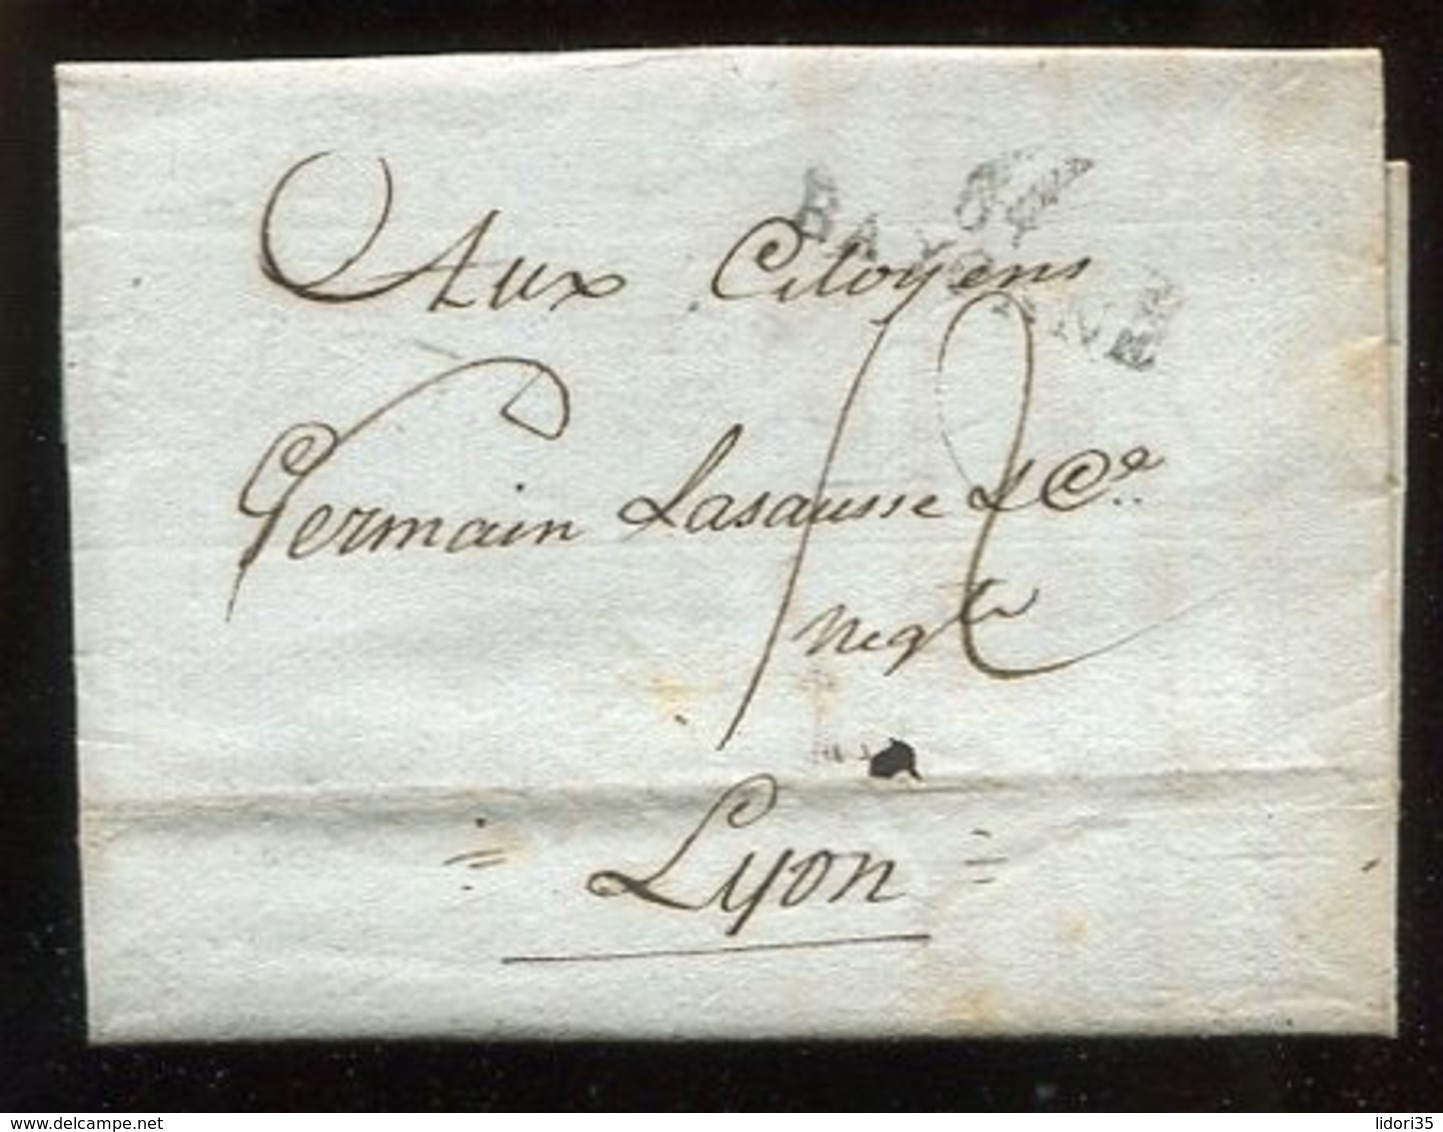 Aux Citoyens
Germain Lasausse & Ce
negts
Lyon
delcampe.net
lidori35